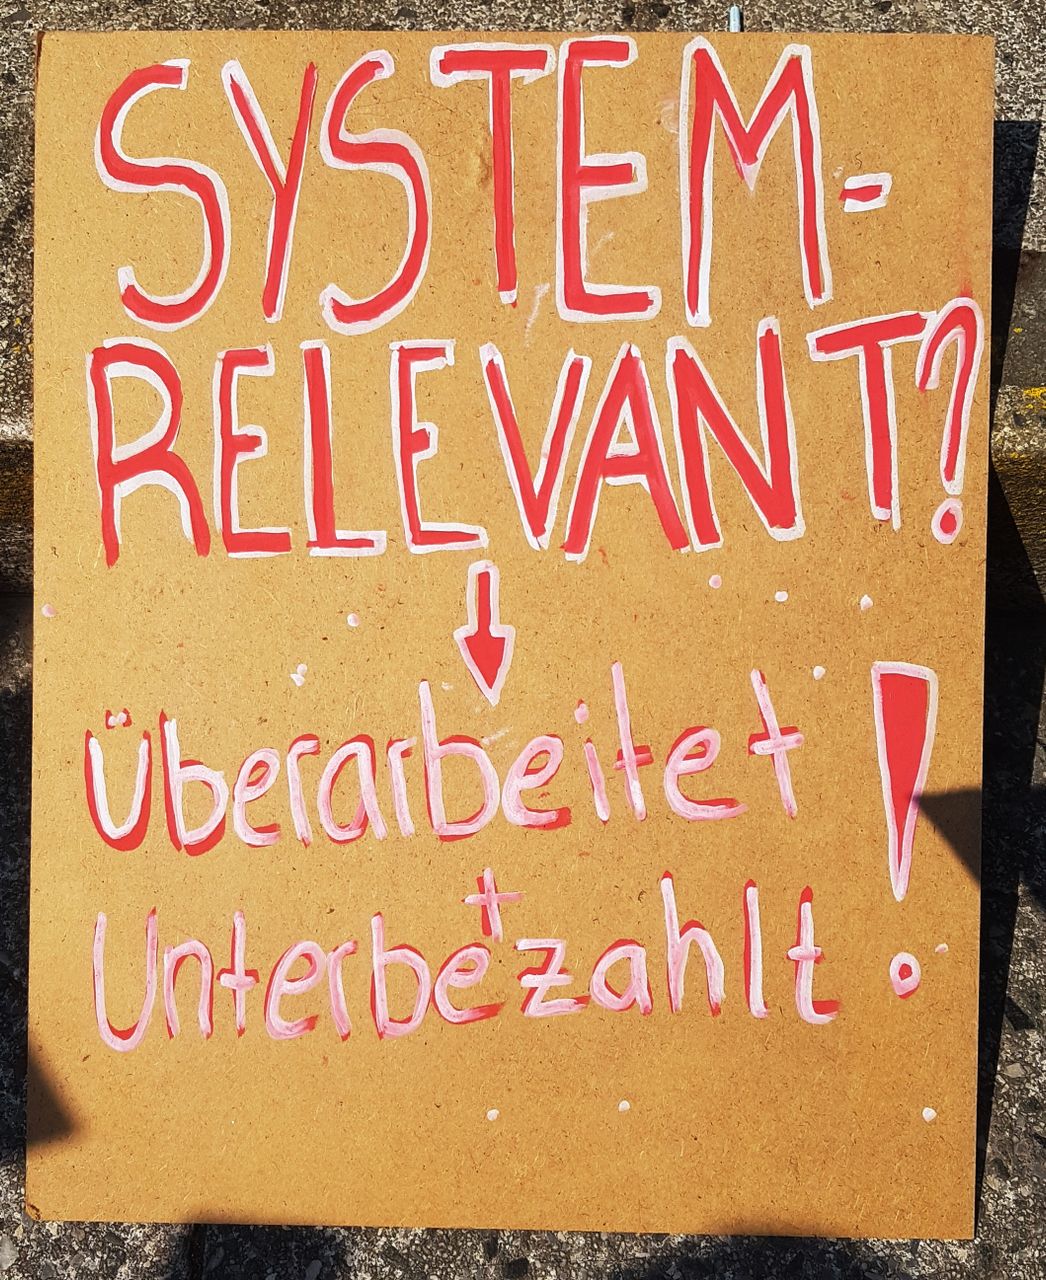 SYSTEM-
RELEVANT?
Überarbeitet
+
Unterbezahlt!